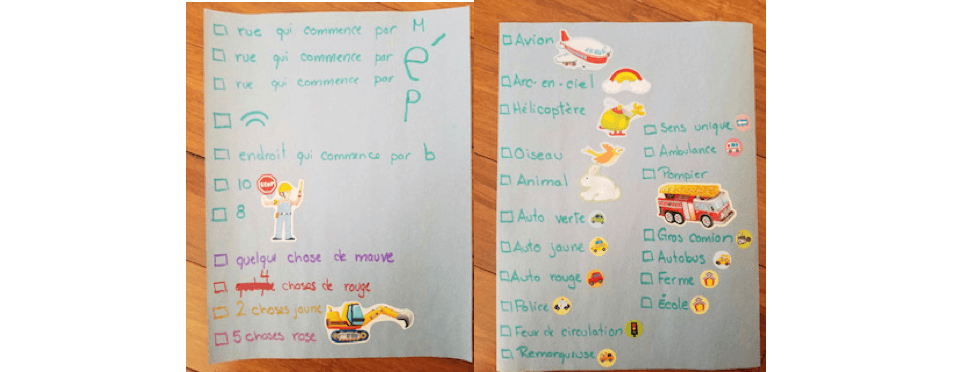 rue qui commence par M
rue qui commence par é
rue qui commence par P
endroit qui commence par b
10
STOP
8
quelque chose de mauve
4 choses de rouge
2 choses jaune
5 choses rose
Avion
Arc-en-ciel
Hélicoptère
Oiseau
Animal
Auto verte
Auto jaune
Auto rouge
Police
Feux de circulation
Remorqueuse
Sens unique
Ambulance
Pompier
Gros camion
Autobus
Ferme
École